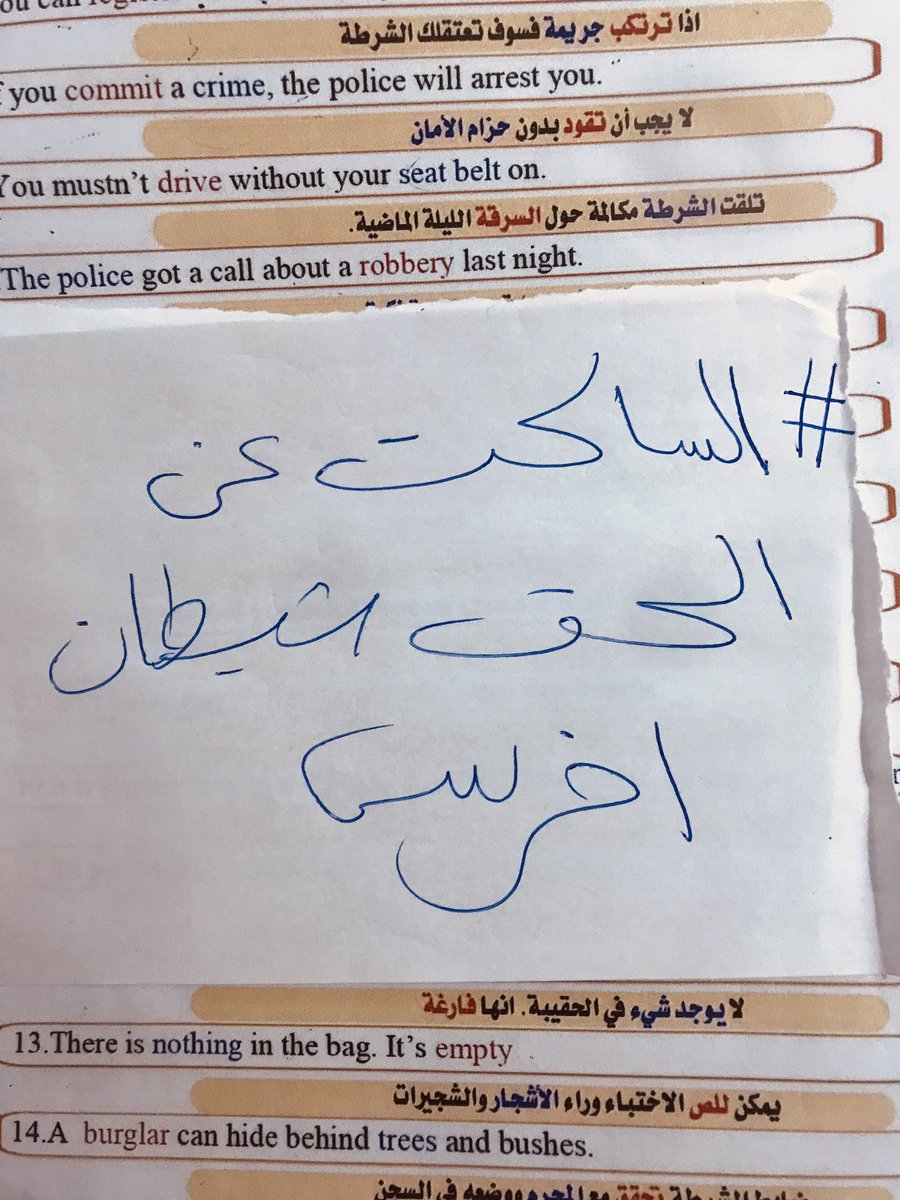 you can
اذا ترتكب جريمة فسوف تعتقلك الشرطة
you commit a crime, the police will arrest you.
لا يجب أن تقود بدون حزام الأمان
You mustn't drive without your seat belt on.
تلقت الشرطة مكالمة حول السرقة الليلة الماضية.
The police got a call about a robbery last night.
#الساكت عن
الحق شيطان
اخرس
لا يوجد شيء في الحقيبة. انها فارغة
13.There is nothing in the bag. It's empty
يمكن للص الاختباء وراء الأشجار والشجيرات
14.A burglar can hide behind trees and bushes.
الشرطة تحقق مع المجرم ووضعه في السجن